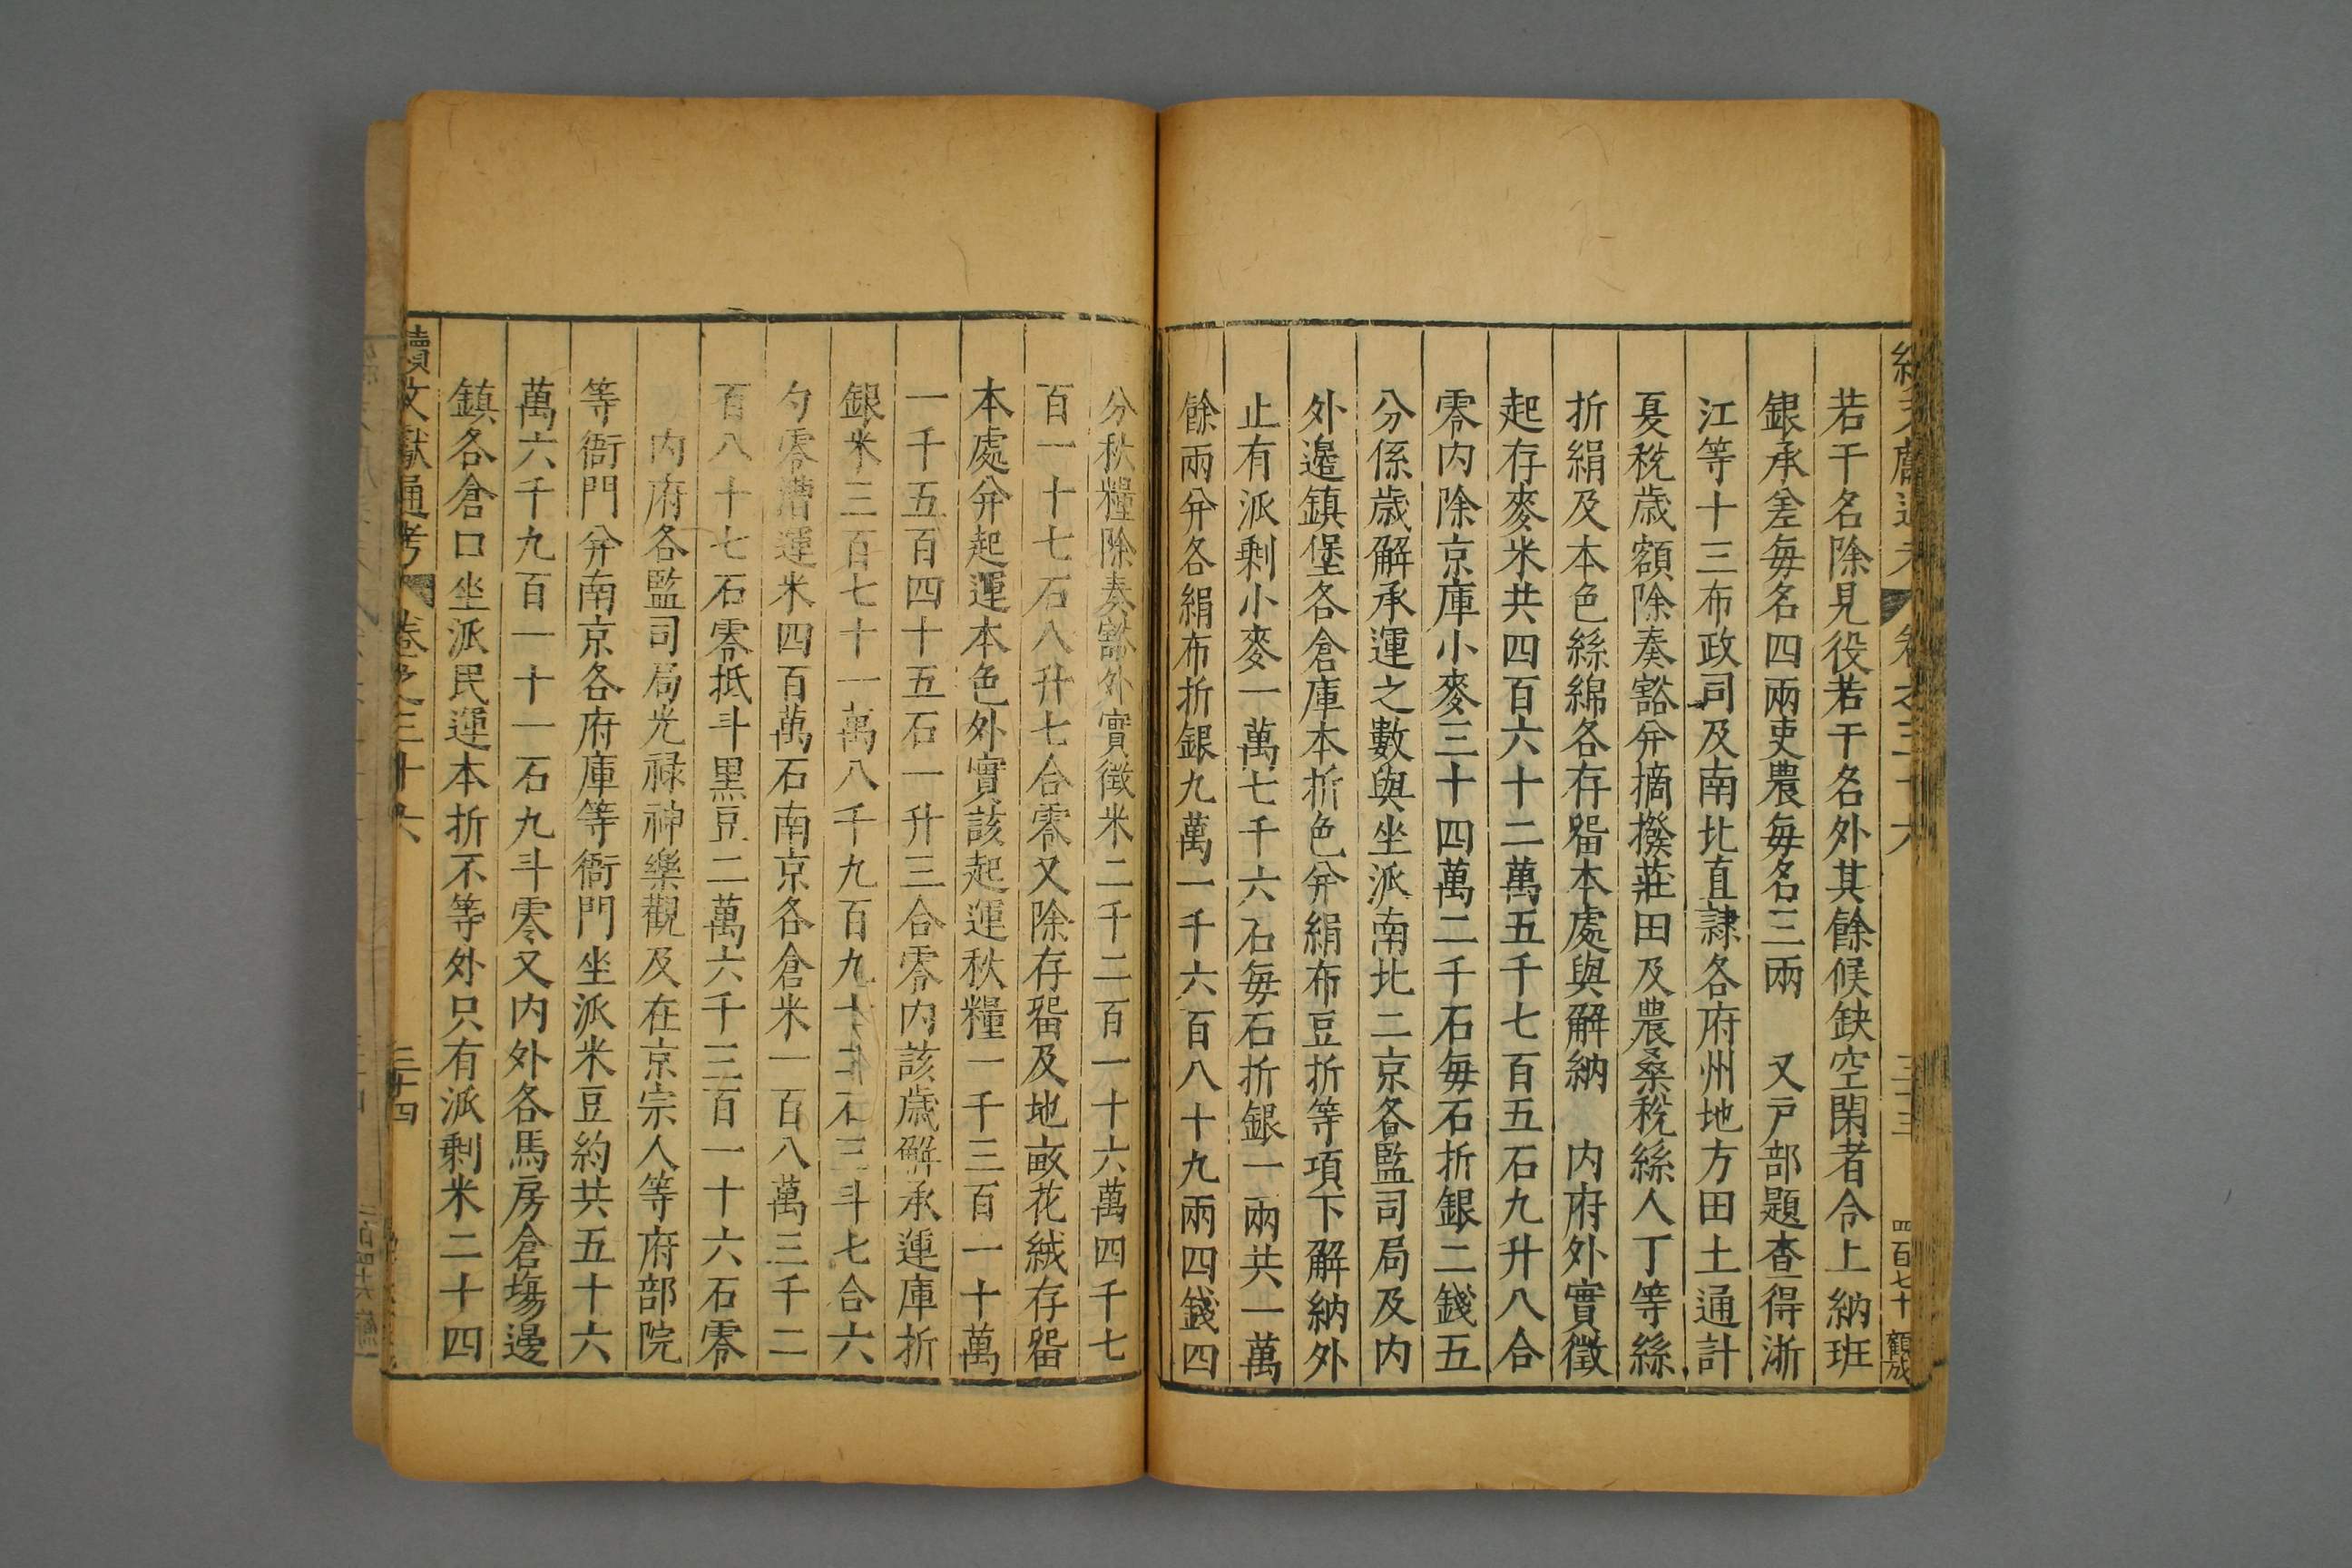 續文獻通考 卷之三十六 三十三 四百七十 顧成
若干名除見役若干名外其餘候缺空閑者令上納班
銀承差每名四兩吏農每名三兩 又戸部題查得浙
江等十三布政司及南北直隷各府州地方田土通計
夏稅歲額除奏豁分摘撥莊田及農桑稅絲人丁等絲
折絹及本色絲綿各存畱本處與解納 内府外實徵
起存麥米共四百六十二萬五千七百五石九升八合
零内除京庫小麥三十四萬二千石每石折銀二錢五
分係歲解承運之數與坐派南北二京各監司局及内
外邊鎮堡各倉庫本折色并絹布豆折等項下解納外
止有派剩小麥一萬七千六石每石折銀一兩共一萬
餘兩并各絹布折銀九萬一千六百八十九兩四錢四
分秋糧除奏豁外實徵米二千二百一十六萬四千七
百一十七石八升七合零又除存畱及地畝花絨存畱
本處并起運本色外實該起運秋糧一千三百一十萬
一千五百四十五石一升三合零内該歲解承運庫折
銀米三百七十一萬八千九百九十二石三斗七合六
勺零漕運米四百萬石南京各倉米一百八萬三千二
百八十七石零抵斗黑豆二萬六千三百一十六石零
内府各監司局光禄神樂觀及在京宗人等府部院
等衙門并南京各府庫等衙門坐派米豆約共五十六
萬六千九百一十一石九斗零又内外各馬房倉塲邊
鎮各倉口坐派民運本折不等外只有派剩米二十四
續文獻通考 卷之三十六 三十四